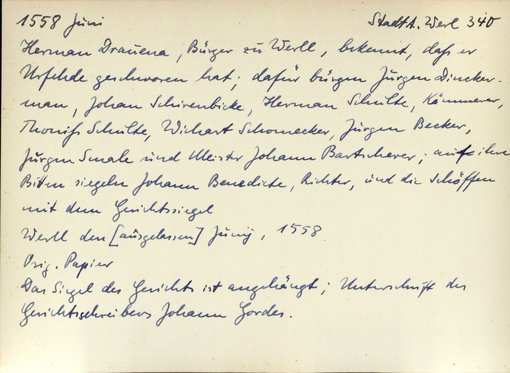 1558 Juni Stadt A. Werl 340
Herman Drauena, Bürger zu Werll, bekennt, dass er
Urfehde geschworen hat; dafür bürgen Jürgen Dincker-
man, Johan Schirenbicke, Herman Schulte, Kämmerer,
Thoniss Schulte, Wichart Schomecker, Jürgen Becker,
Jürgen Smale und Meister Johann Bartscherer; auf ihre
Bitten siegeln Johann Benedicte, Richter, und die Schöffen
mit dem Gerichtssiegel
Werll den [ausgelassen] Junij, 1558.
Orig. Papier
Das Siegel des Gerichts ist angehängt; Unterschrift des
Gerichtsschreibers Johann Gordes.